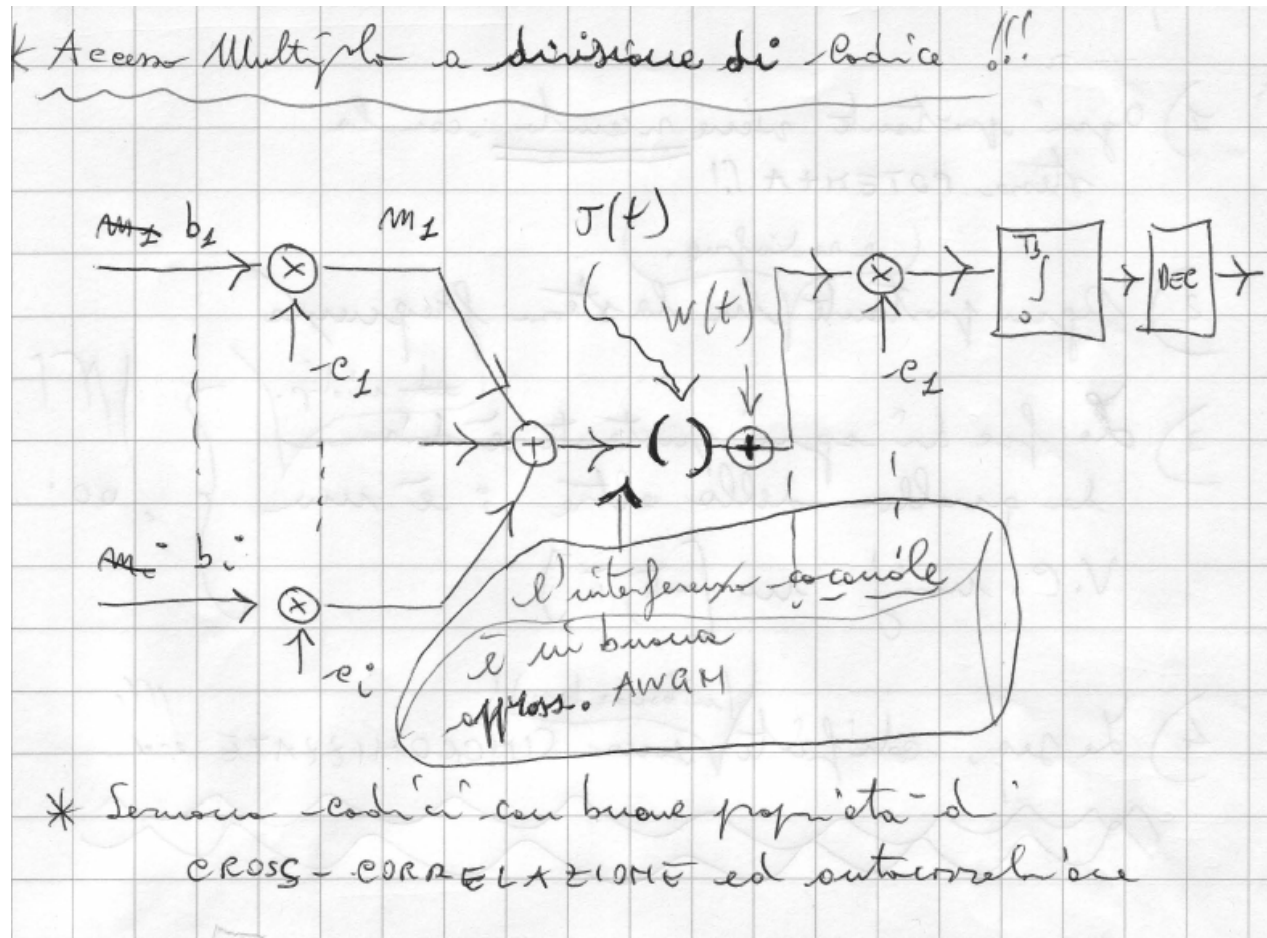 * Accesso Multiplo a divisione di Codice !!!
m1 b1
m1
J(t)
W(t)
c1
c1
Tb
∫
0
DEC
( )
mi bi
ci
l'interferenza cocanale
è in buona
appross. AWGN
* Servono codici con buone proprietà di
CROSS-CORRELAZIONE ed autocorrelazione